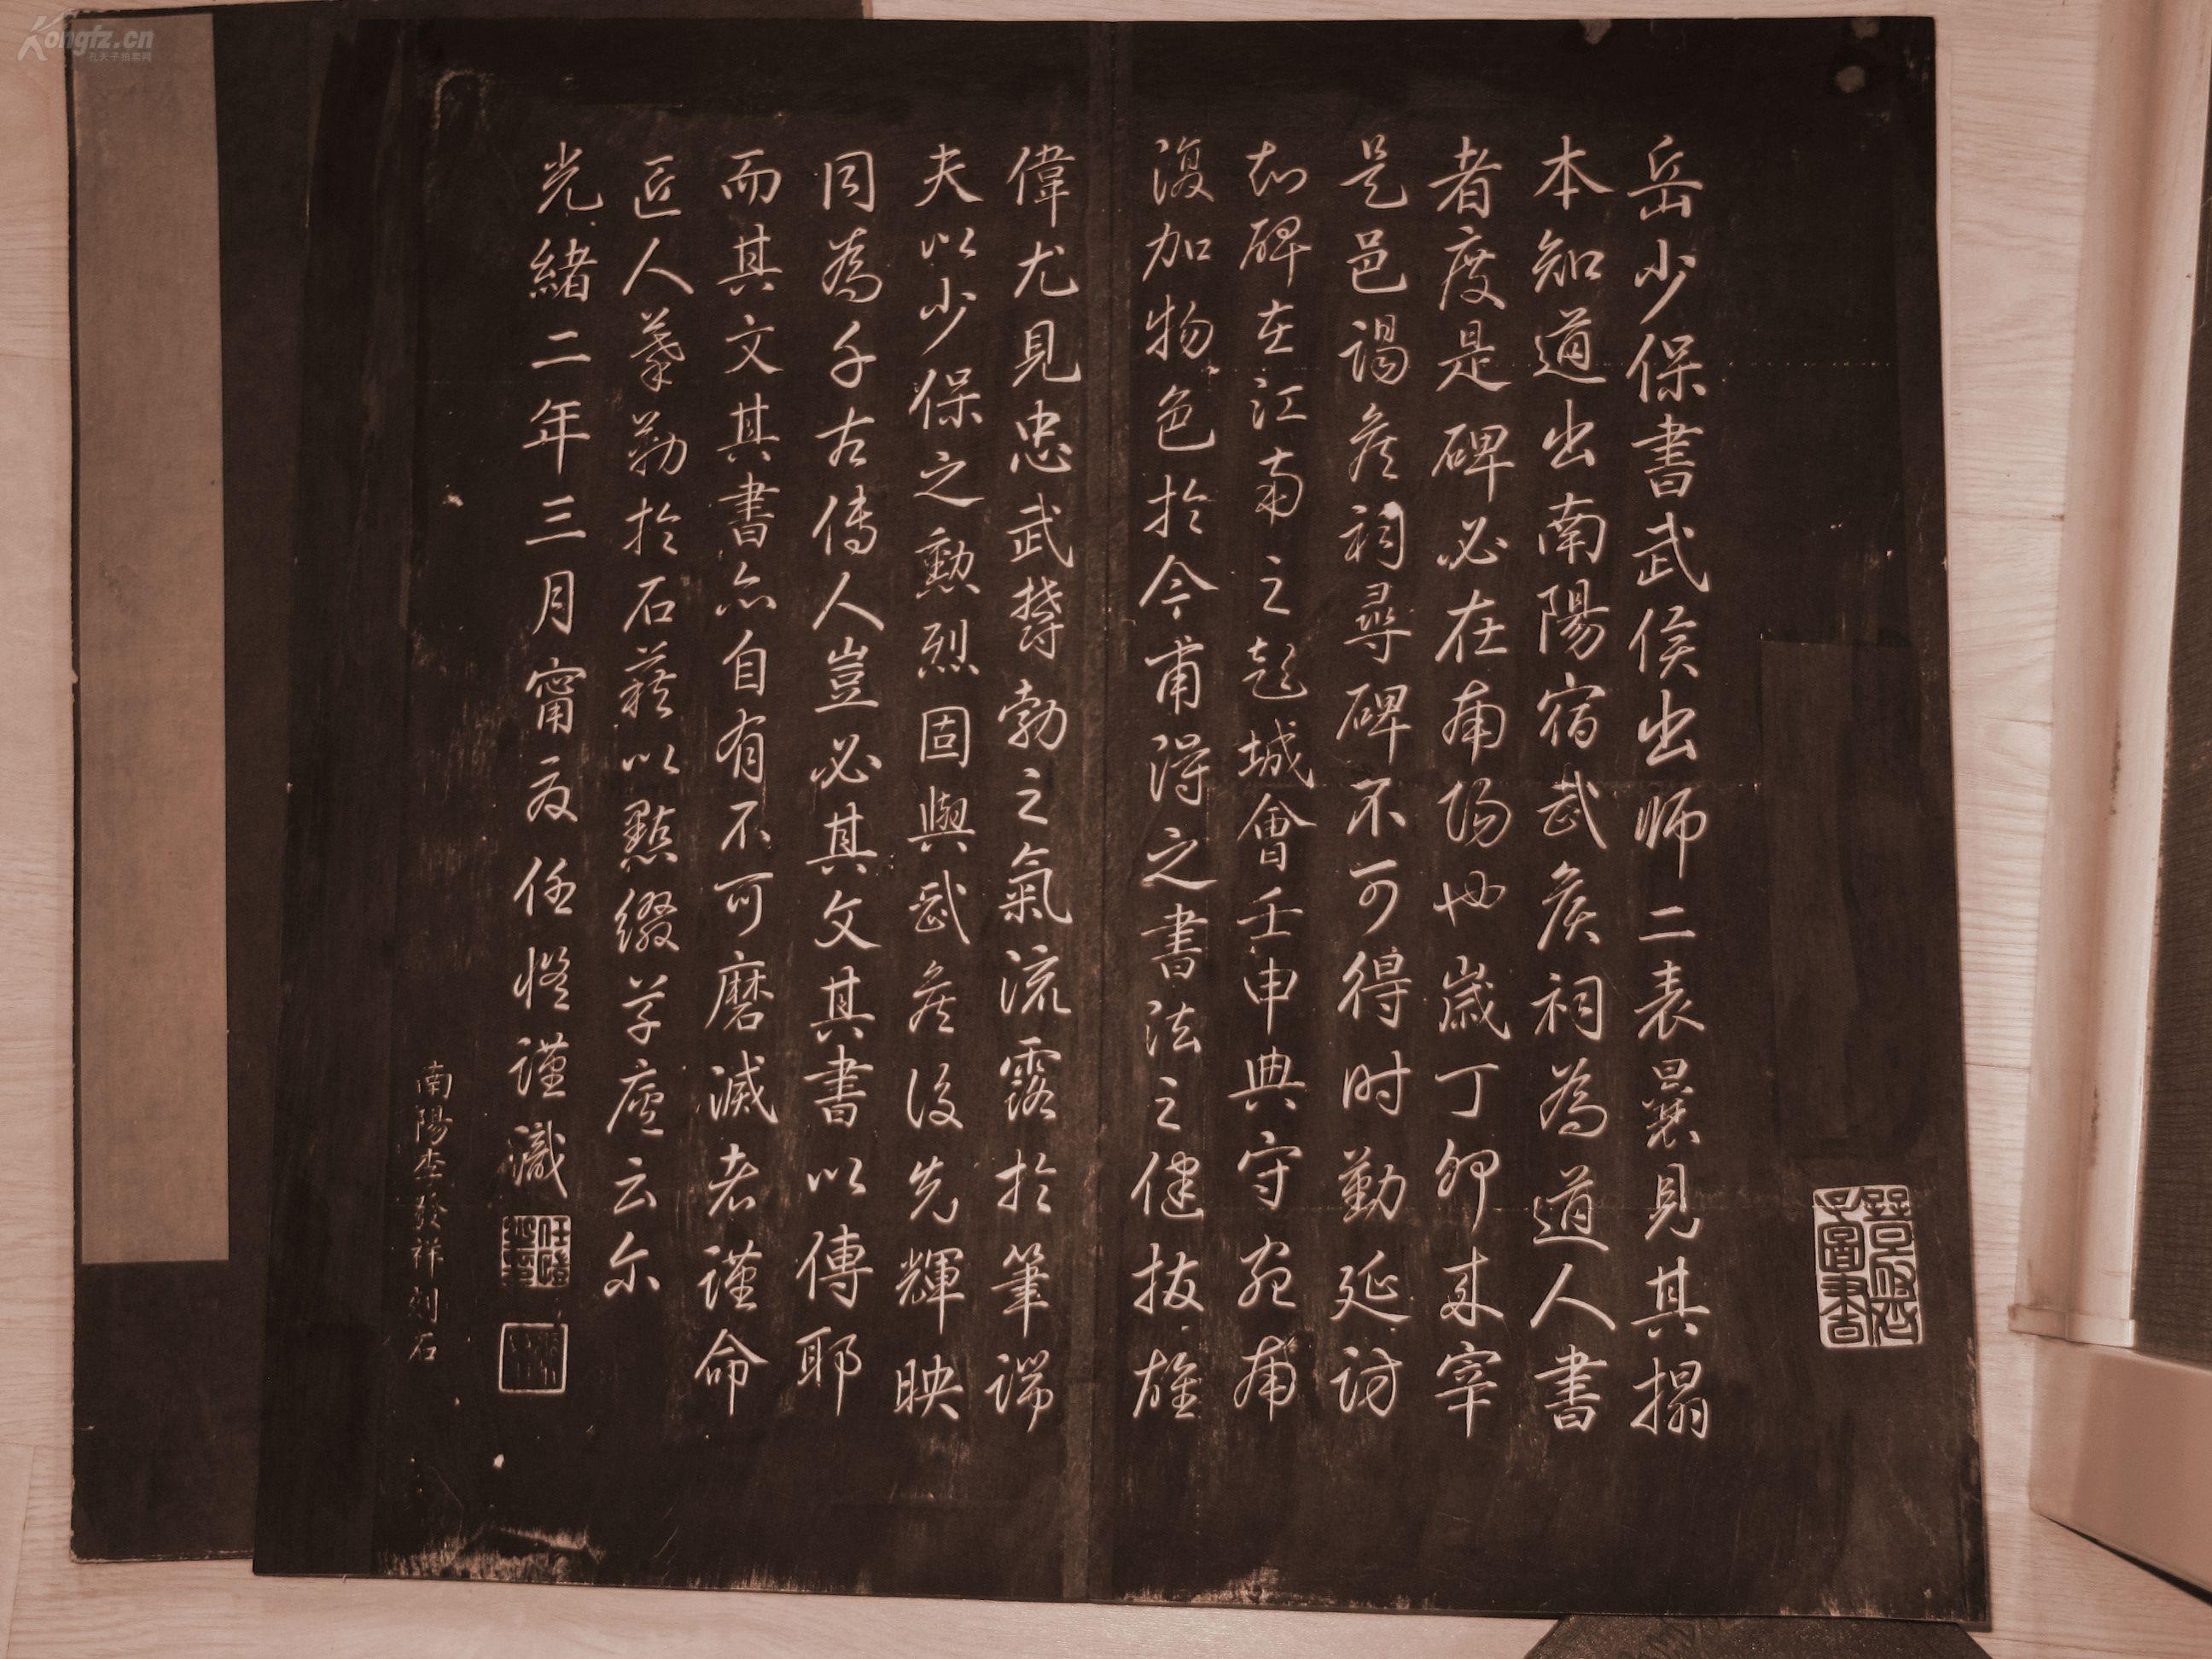 岳少保書武侯出师二表曩見其搨
本知道出南陽宿武侯祠為道人書
者度是碑必在南陽也歲丁卯来宰
是邑謁侯祠尋碑不可得时勤延訪
知碑在江南之彭城會壬申典守宛南
復加物色於今甫得之書法之健拔雄
偉尤見忠武欝勃之氣流露於筆端
夫以少保之勳烈固與武侯後先輝映
同為千古傳人豈必其文其書以傳耶
而其文其書亦自有不可磨滅者謹命
匠人摹勒於石藉以點綴草廬云尔
光緒二年三月甯夏任愷謹識
南陽李發祥刻石
Kongfz.cn